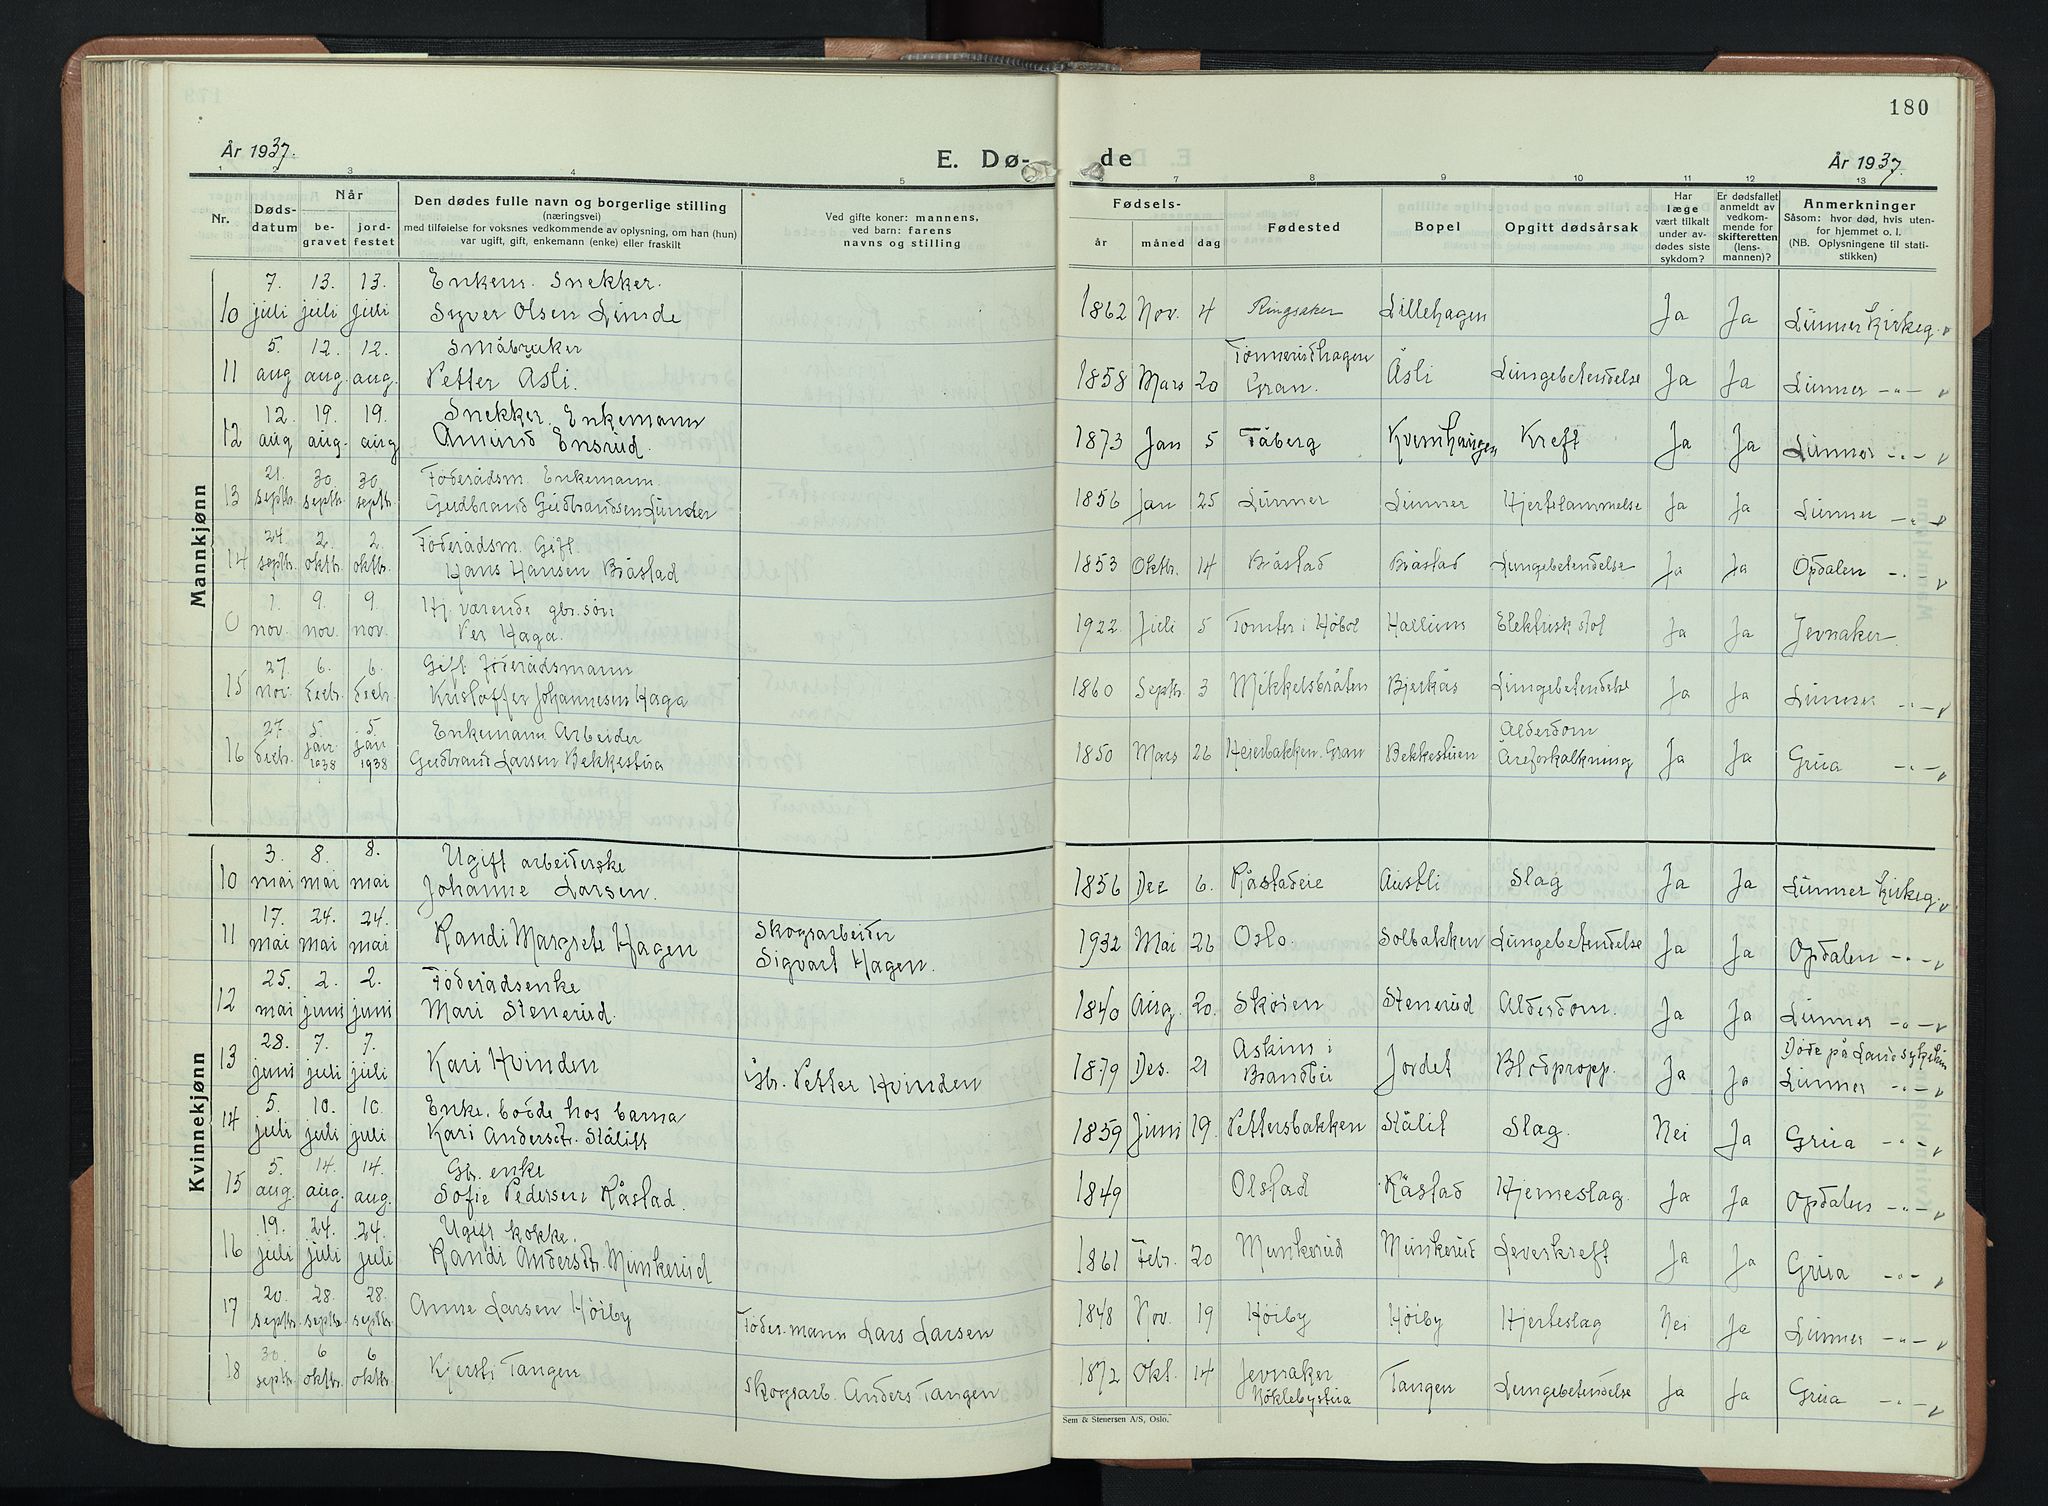 180
År 1937.
E. Dø-
de
År 1937.
1 2 3 4 5 6 7 8 9 10 11 12 13
Nr.
Døds-
datum
Når
be-
gravet
jord-
festet
Den dødes fulle navn og borgerlige stilling
(næringsvei)
med tilføielse for voksnes vedkommende av oplysning, om han (hun)
var ugift, gift, enkemann (enke) eller fraskilt
Ved gifte koner: mannens,
ved barn: farens
navns og stilling
Fødsels-
år måned dag
Fødested
Bopel
Opgitt dødsårsak
Har
læge
vært tilkalt
under av-
dødes siste
sykdom?
Er dødsfallet
anmeldt av
vedkom-
mende for
skifteretten
(lens-
mannen)?
Anmerkninger
Såsom: hvor død, hvis uten-
for hjemmet o. l.
(NB. Oplysningene til stati-
stikken)
Mannkjønn
7. 13. 13. Enkem. Snekker.
10 juli juli juli Syver Olsen Linde 1862 Nov. 4 Ringsaker Lillehagen Ja Ja Lunner Kirkeg.
5. 12. 12. Småbruker
11 aug aug. aug. Petter Åsli. 1858 Mars 20 Gran. Åsli Lungebetendelse Ja Ja Lunner -"-
12. 19. 19. Snekker. Enkemann
12 aug aug. aug Amund Ensrud. 1873 Jan 5 Fåberg Kvernhaugen Kreft Ja Ja Lunner -"-
21. 30. 30. Føderådsm. Enkemann.
13 septbr. septbr. septbr. Gudbrand Gudbrandsen Lunder 1856 Jan 25 Lunner Lunner Hjertelammelse Ja Ja Lunner -"-
24. 2. 2. Føderådsm. Gift
14 septbr. oktbr. oktbr. Hans Hansen Bråstad 1853 Oktbr. 14 Bråstad Bråstad Lungebetendelse Ja Ja Opdalen -"-
1. 9. 9. Hj. værende gbr. søn
0 nov. nov. nov. Per Haga. 1922 Juli 5 Tomter i Høbøl Hallum Elektrisk støt Ja Ja Jevnaker.
27. 6. 6. Gift føderådsmann
15 nov. decbr. decbr. Kristoffer Johannesen Haga 1860 Septbr. 3 Mikkelsbråten Bjerkås Lungebetendelse Ja Ja Lunner -"-
27. 5. 5. Enkemann Arbeider
16 decbr. jan. 1938 jan 1938 Gudbrand Larsen Bekkestua 1850 Mars 26 Heierbakken. Gran Bekkestuen Alderdom
Åreforkalkning Ja Ja Grua -"-
Kvinnekjønn
3. 8. 8. Ugift arbeiderske
10 mai mai mai Johanne Larsen. 1856 Dez 6. Råstadeie Austli Slag Ja Ja Lunner Kirkeg.
17. 24. 24. Skogsarbeider
11 mai mai mai Randi Margrete Hagen Sigvart Hagen. 1932 Mai 26 Oslo. Solbakken Lungebetendelse Ja Ja Opdalen -"-
25. 2. 2. Føderådsenke
12 mai juni juni Mari Stenerud. 1840 Aug. 20. Skøien Stenerud Alderdom. Ja Ja Lunner -"-
28. 7. 7. Askim i Døde på Landssykehus
13 juni juli juli Kari Hvinden Gbr. Petter Hvinden 1879 Des. 21 Brandbu Jordet Blodpropp. Ja Ja Lunner -"-
5. 10. 10. Enke. bodde hos barna
14 juli juli juli Kari Andersdtr. Ståliet 1859 Juni 19. Pettersbakken Stålit Slag. Nei Ja Grua -"-
5. 14. 14. Gb. enke
15 aug. aug. aug. Sofie Pedersen Råstad. 1849 Olstad Råstad Hjerneslag. Ja Ja Opdalen -"-
19. 24. 24. Ugift kokke.
16 juli juli juli Randi Andersdtr. Munkerud 1861 Febr. 20 Munkerud Munkerud Leverkreft Ja Ja Grua -"-
20. 28. 28.
17 septbr. septbr. septbr. Anne Larsen Høiby Føder.mann Lars Larsen 1848 Nov. 19 Høiby Høiby Hjerteslag Nei Ja Lunner -"-
30. 6 6
18 septbr. oktbr. oktbr. Kjersti Tangen Skogsarb. Anders Tangen 1872 Okt. 14 Jevnaker
Nøklebystua Tangen Lungebetendelse Ja Ja Grua -"-
Sem & Stenersen A/S, Oslo.